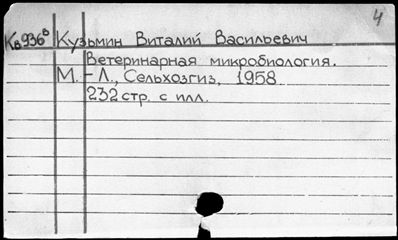 4
Кв936в Кузьмин Виталий Васильевич
Ветеринарная микробиология.
М. - Л., Сельхозгиз, 1958
232 стр. с илл.